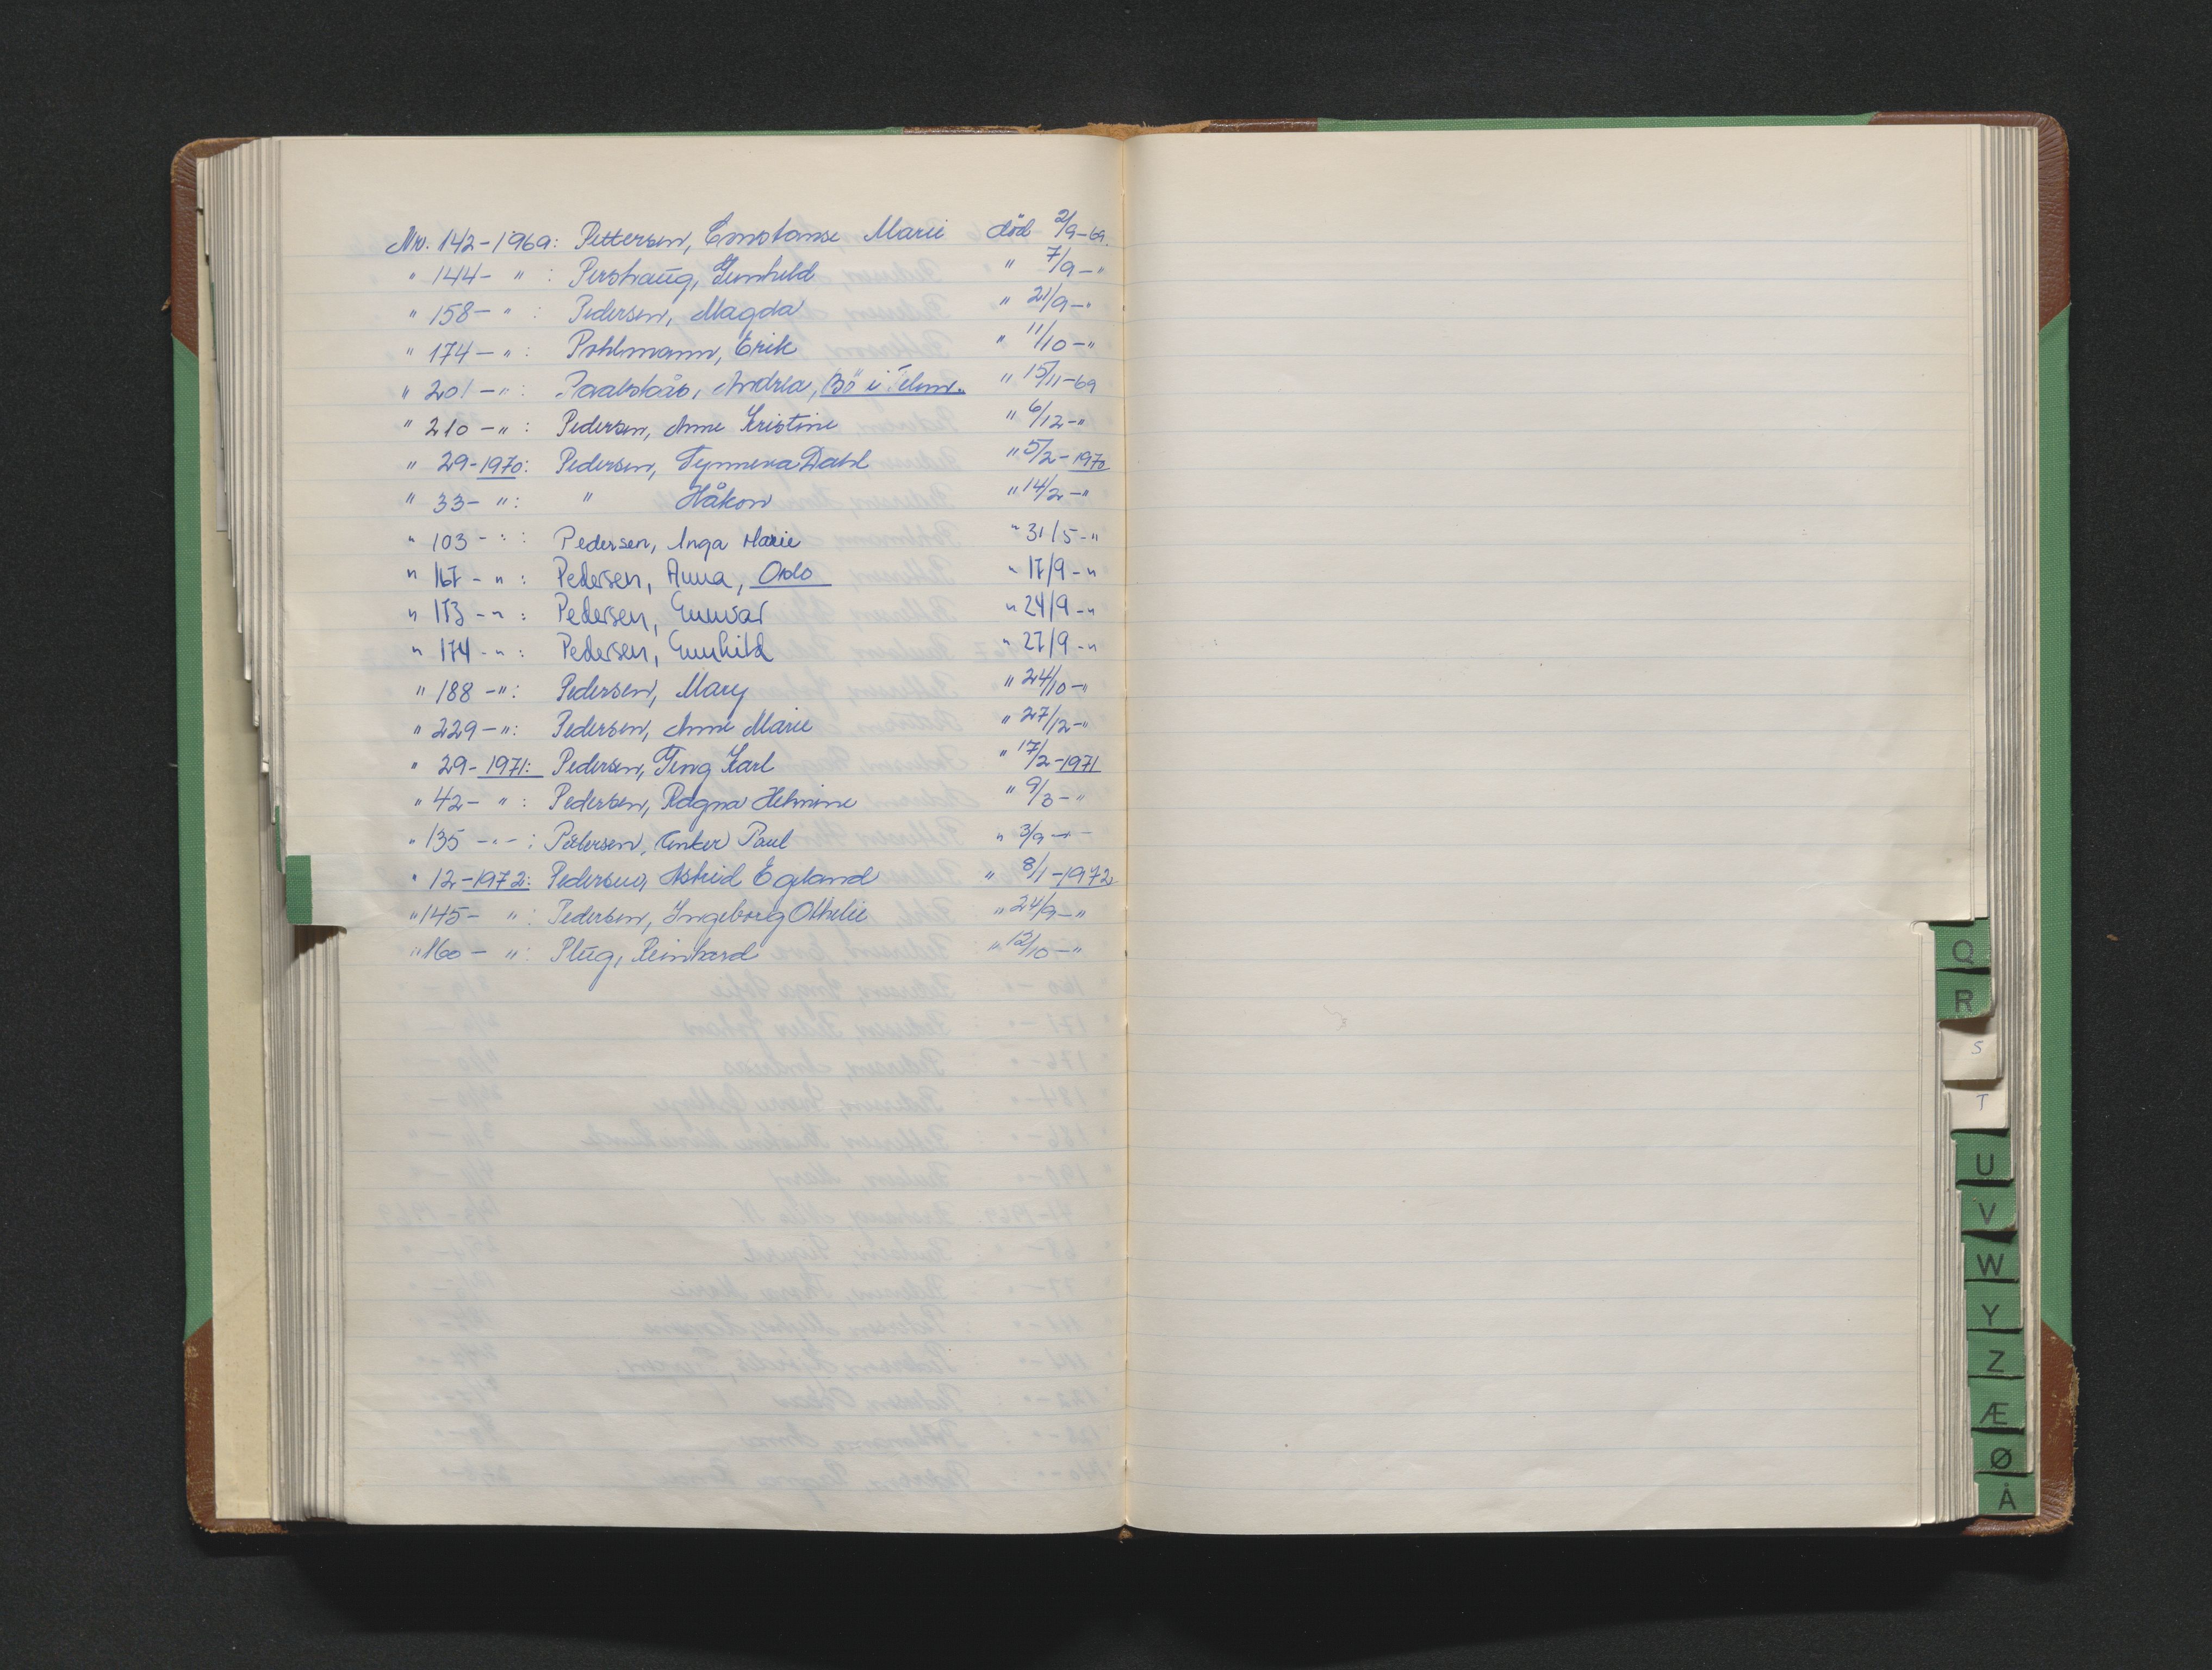 Nr. 142-1969: Pettersen, Constanse Marie død 2/9-69.
" 144- " : Pershaug, Gunhild " 7/9-"
" 158- " : Pedersen, Magda " 21/9-"
" 174- " : Pohlmann, Erik " 11/10-"
" 201-" : Andrea, Bö i Telem. " 15/11-69
" 210-" : Pedersen, Anne Kristine " 6/12-"
" 29-1970: Pedersen, Synneva Dahl " 5/2-1970
" 33- " : " Håkon " 14/2-"
" 103-" : Pedersen, Inga Marie " 31/5-"
" 167-" : Pedersen, Anna, Oslo " 17/9-"
" 173-" : Pedersen, Gunvar " 24/9-"
" 174-" : Pedersen, Gunhild " 27/9-"
" 188-" : Pedersen, Mary " 24/10-"
" 229-" : Pedersen, Anne Marie " 27/12-"
" 29-1971: Pedersen, Karl " 17/2-1971
" 42- " : Pedersen, Ragna Helmine " 9/3-"
" 135-"- : Pedersen, Anker Paul " 3/9-"-
" 12-1972: Pedersen, Astrid Egeland " 8/1-1972
" 145- " : Pedersen, Ingeborg Othelie " 24/9-"
" 160- " : Plug, Reinhard " 12/10-"
Q
R
S
T
U
V
W
Y
Z
Æ
Ø
Å